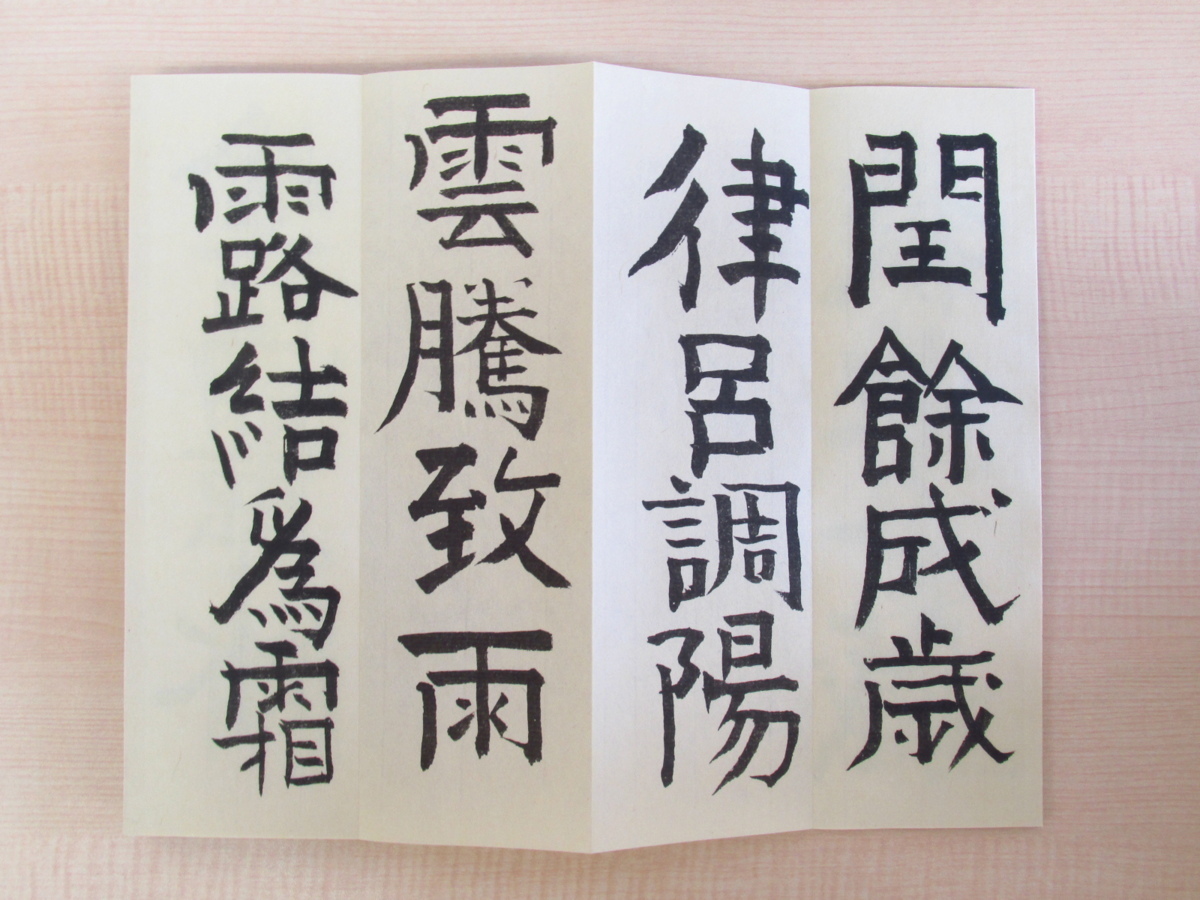 閏餘成歳
律呂調陽
雲騰致雨
露結爲霜